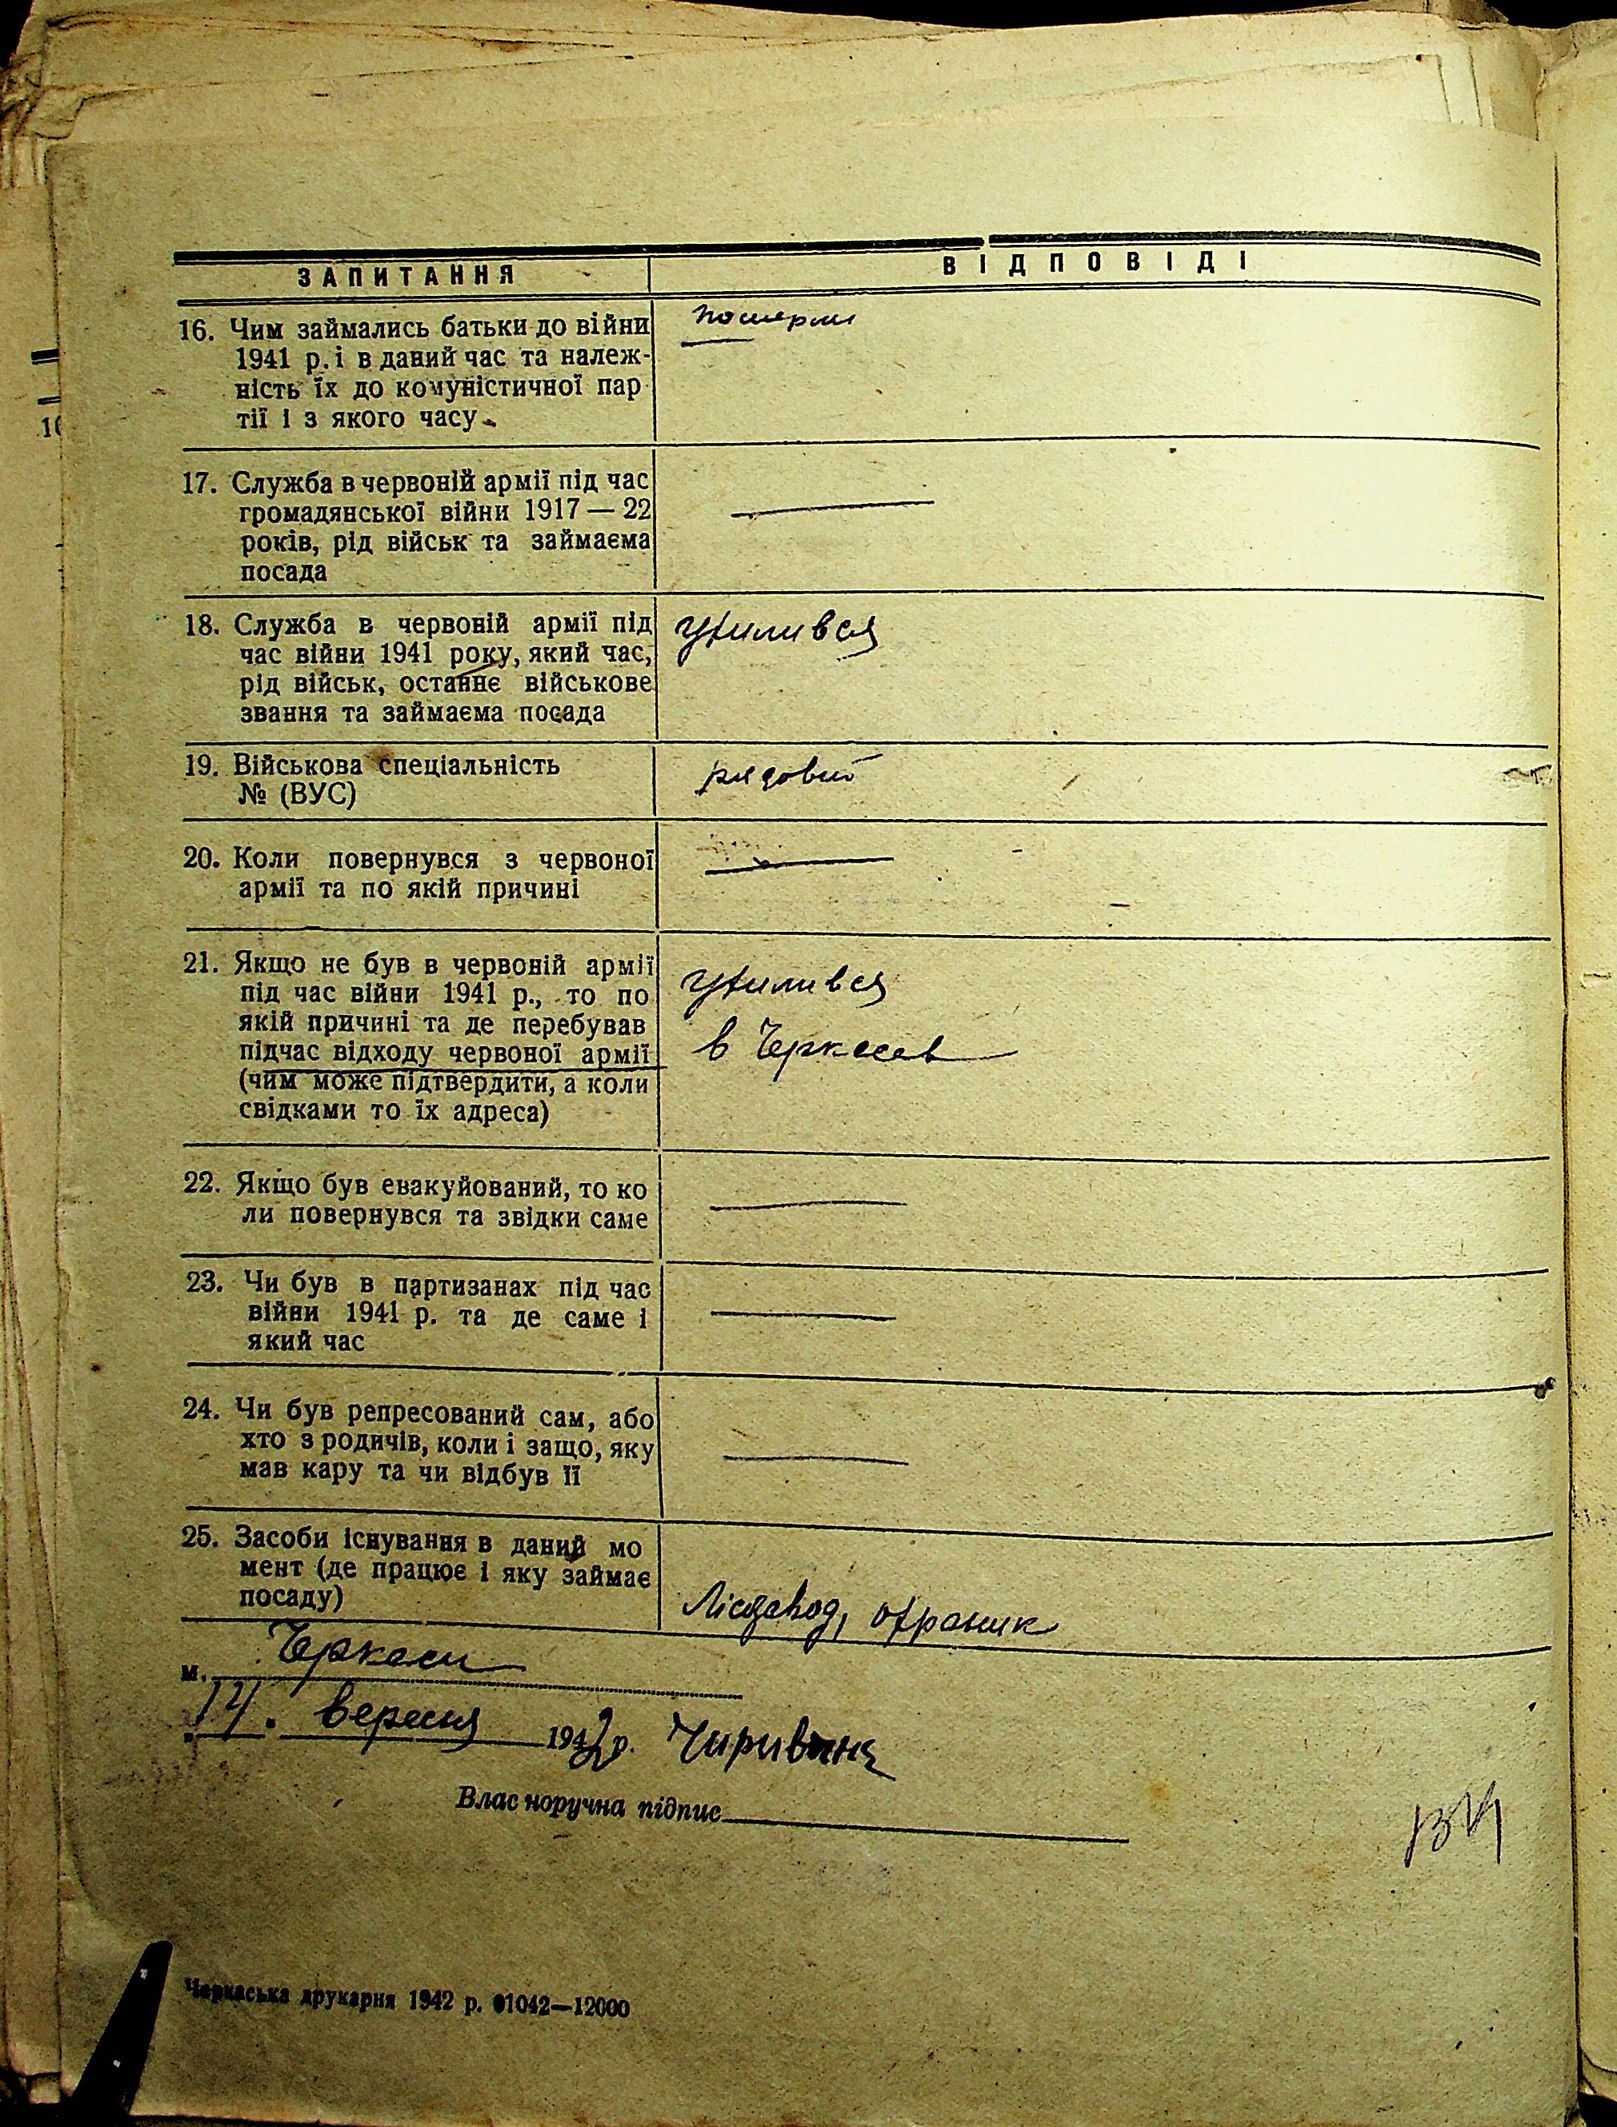 ЗАПИТАННЯ
ВІДПОВІДІ
16. Чим займались батьки до війни
1941 р. і в даний час та належ-
ність їх до комуністичної пар
тії і з якого часу
померли
17. Служба в червоній армії під час
громадянської війни 1917 — 22
років, рід військ та займаєма
посада
18. Служба в червоній армії під
час війни 1941 року, який час,
рід військ, останнє військове
звання та займаєма посада
ухилився
19. Військова спеціальність
№ (ВУС)
рядовий
20. Коли повернувся з червоної
армії та по якій причині
21. Якщо не був в червоній армії
під час війни 1941 р., то по
якій причині та де перебував
підчас відходу червоної армії
(чим може підтвердити, а коли
свідками то їх адреса)
ухилився
в Черкасах
22. Якщо був евакуйований, то ко
ли повернувся та звідки саме
23. Чи був в партизанах під час
війни 1941 р. та де саме і
який час
24. Чи був репресований сам, або
хто з родичів, коли і защо, яку
мав кару та чи відбув її
25. Засоби існування в даний мо
мент (де працює і яку займає
посаду)
Лісзавод, охраник
м. Черкаси
14. вересня 1942 р.
Власноручна підпис
Черкаська друкарня 1942 р. 01042—12000